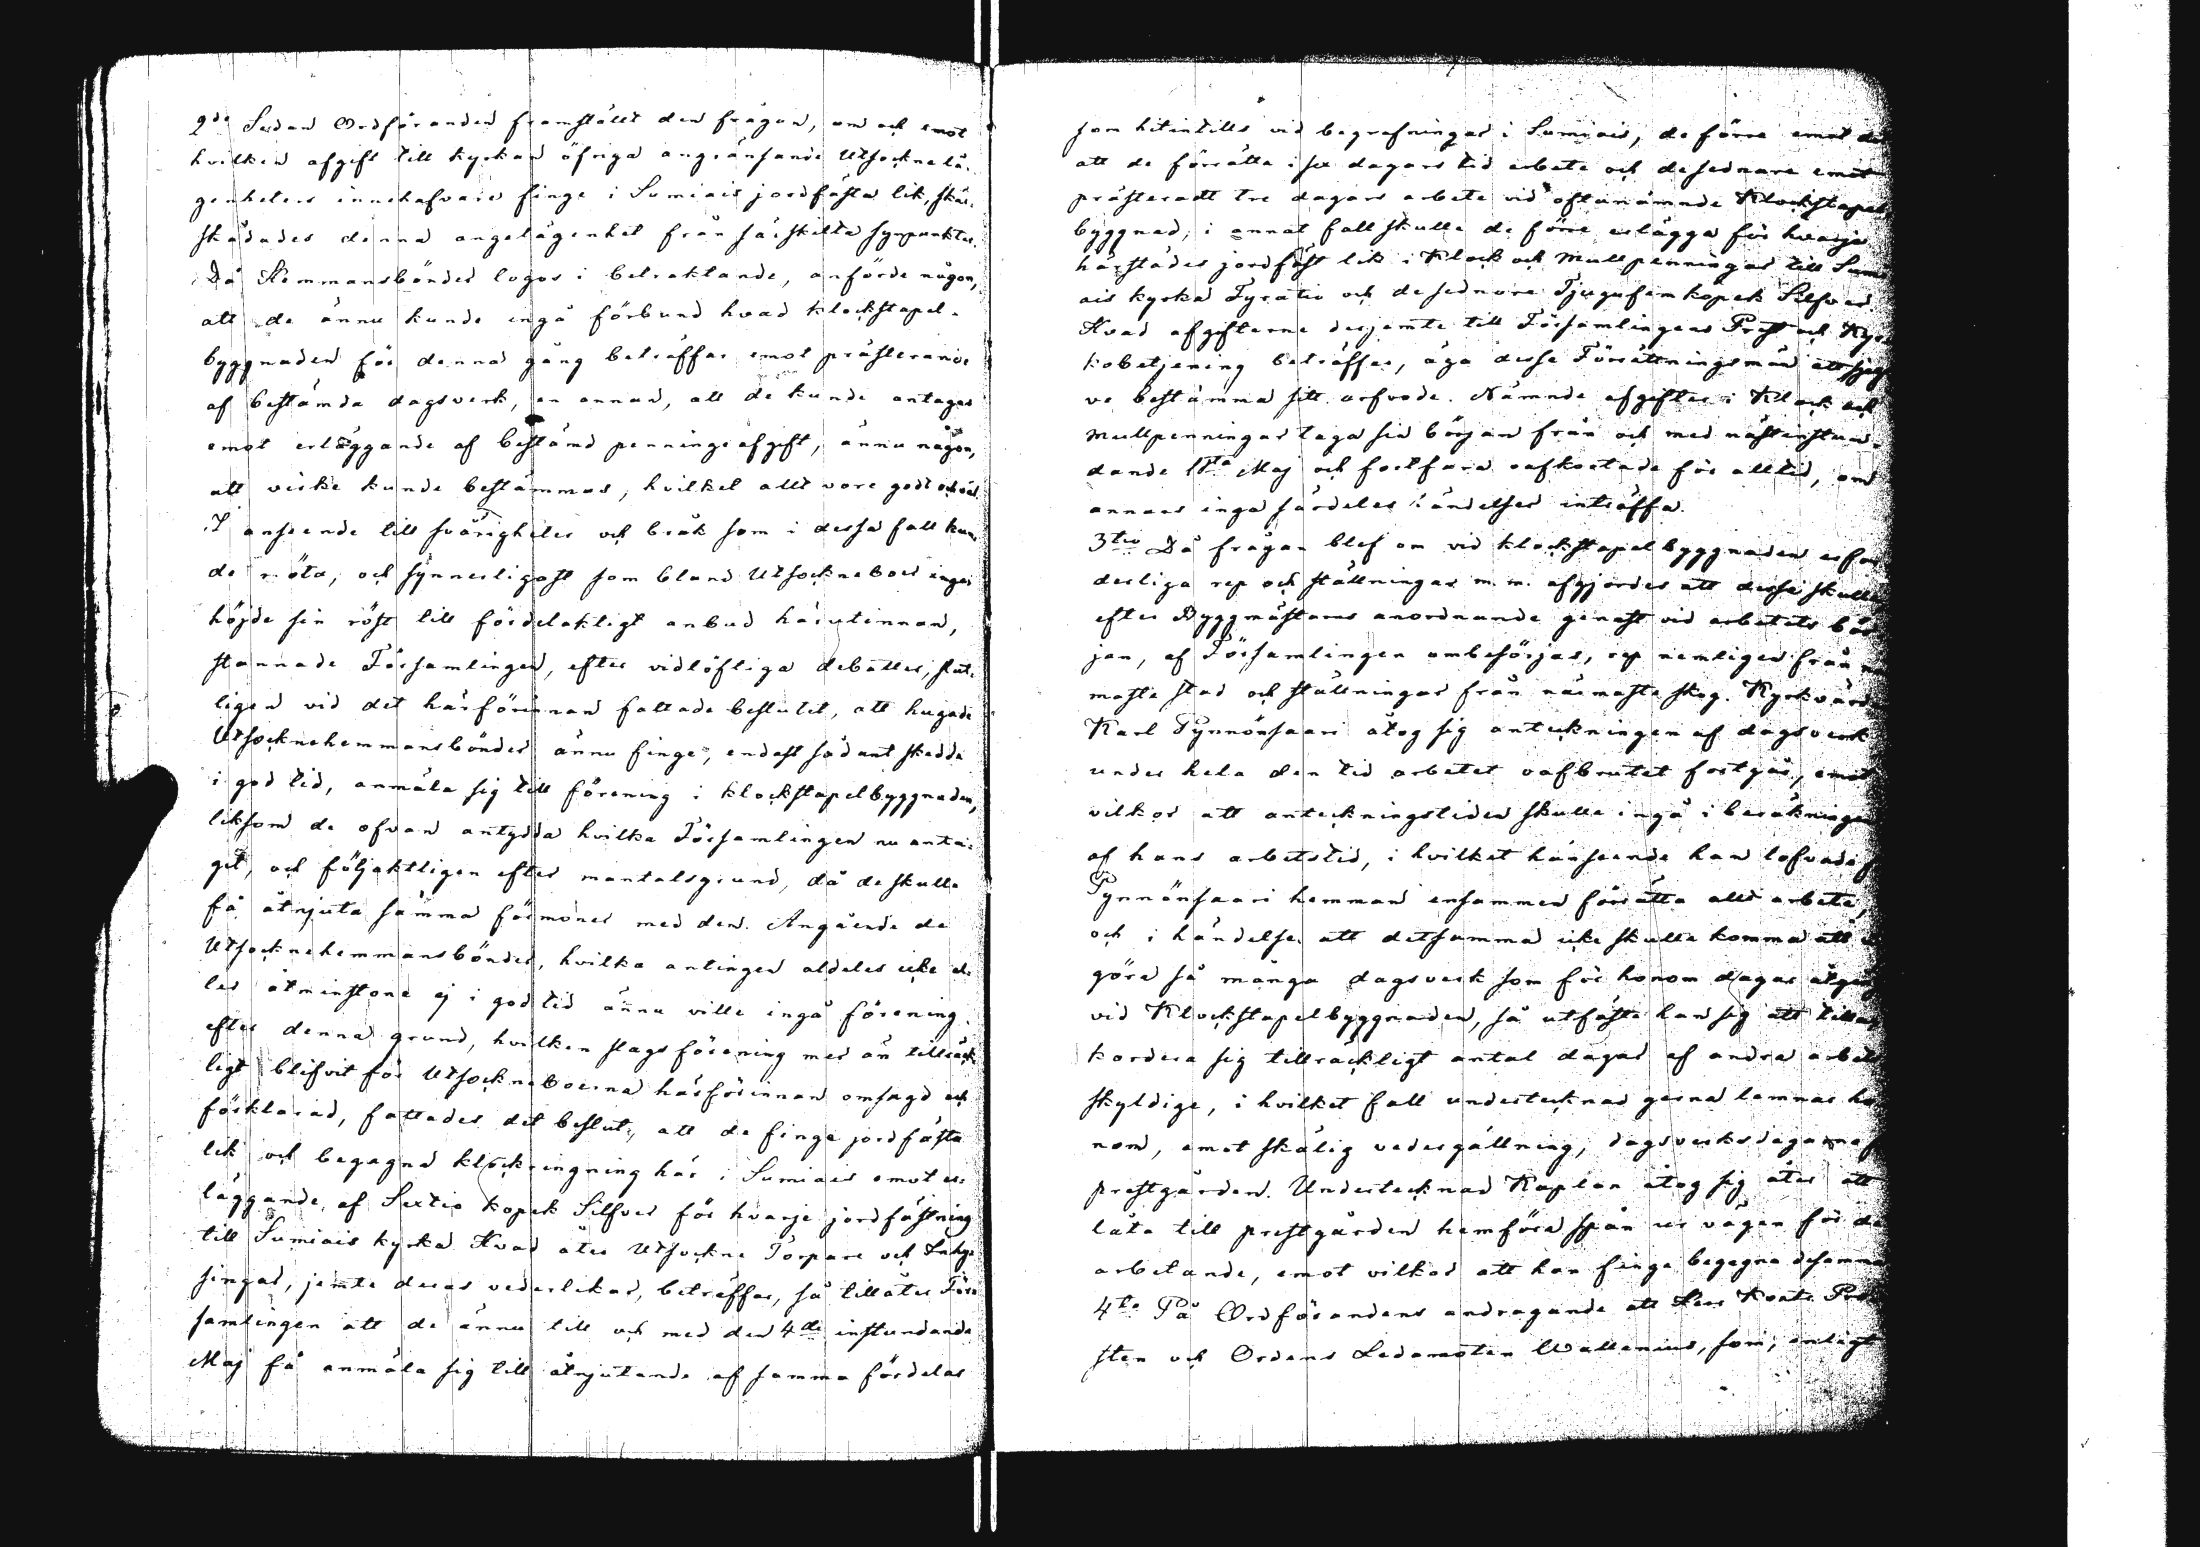 2do Sedan Ordföranden framstält den frågan, om och emot
hvilken afgift till kyrkan öfriga angränsande Utsocknelä-
genheters innehafvare finge i Sumiais jordfästa lik, skär-
skådades denna angelägenhet från särskilta synpunkter.
Då Hemmansbönder togos i betraktande, anförde någon,
att de ännu kunde ingå förbund hvad klockstapel-
byggnaden för denna gång beträffar emot präster ande
af bestämda dagsverk, en annan, att de kunde antagas
emot erläggande af bestämd penningeafgift, ännu någon,
att virke kunde bestämmas, hvilket allt vore godt och väl.
I anseende till svårigheter och bråk som i dessa fall kun-
de möta, och synnerligast som bland Utsocknebor ingen
höjde sin röst till fördelaktigt anbud härutinnan,
stannade Församlingen, efter vidlöftiga debatter, slut-
ligen vid det härförinnan fattade beslutet, att hugade
Utsocknehemmansbönder ännu finge, endast sådant skedde
i god tid, anmäla sig till förening i klockstapelbyggnaden,
liksom de ofvan antydda hvilka Församlingen nu anta-
git, och följaktligen efter mantalsgrund, då de skulle
få åtnjuta samma förmåner med den. Angående de
Utsocknehemmansbönder, hvilka antingen aldeles icke el-
ler åtminstone ej i god tid ännu ville ingå förening
efter denna grund, hvilken slags förening mer än tillräck-
ligt blifvit för Utsockneboerna härförinnan omsagd och
förklarad, fattades det beslut, att de finge jordfästa
lik och begagna klockringning här i Sumiais emot er-
läggande af Sextio kopek Silfver för hvarje jordfästning
till Sumiais kyrka. Hvad åter Utsockne Torpare och Inhy-
singar, jemte deras vederlikar, beträffar, så tillåter För-
samlingen att de ännu till och med den 4de instundande
Maj få anmäla sig till åtnjutande af samma fördelar
som hitintills vid begrafningar i Sumiais, de förre emot det
att de förrätta i sex dagars tid arbete och de sednare emot
präster adt tre dagars arbete vid oftanämnde Klockstapel
byggnad; i annat fall skulle de förre erlägga för hvarje
härstädes jordfäst lik i Klock och Mullpenningar till Sumi-
ais kyrka Fyratio och de sednare Tjugufem kopek Silfver.
Hvad afgifterne derjemte till Församlingens Prest och Kyr-
kobetjening beträffar, äga desse Förrättningsmän att sjelf-
ve bestämma sitt arfvode. Nämnde afgifter i Klock och
Mullpenningar taga sin början från och med nästinstun-
dande 1sta Maj och fortfara oafkortade för alltid, om
annars inga särdeles händelser inträffa.
3tio Då frågan blef om vid klockstapelbyggnaden erfor
derliga rep och ställningar m. m. afgjordes att desse skulle
efter Byggmästarns anordnande genast vid arbetets bör
jan, af Församlingen ombesörjas, rep nemligen från när
maste stad och ställningar från närmaste skog. Kyrkvärd
Karl Pynnönsaari åtog sig anteckningen af dagsverk
under hela den tid arbetet oafbrutet fortgår, emot
vilkor att anteckningstiden skulle ingå i beräkningen
af hans arbetstid, i hvilket hänseende han lofvade
Pynnönsaari hemman ensammen förrätta allt arbete,
och i händelse att detsamma icke skulle komma att
göra så många dagsverk som för honom dagar åtgå
vid Klockstapelbyggnaden, så utfäste han sig att till
kordera sig tillräckligt antal dagar af andra arbets
skyldige, i hvilket fall undertecknad gerna lemnar ho-
nom, emot skälig vedergällning, dagsverksdagarna
prestgården. Undertecknad Kaplan åtog sig åter att
låta till prestgården hemföra spån ur vägen för de
arbetande, emot vilkor att han finge begagna desamma
4to På Ordförandens andragande att Herr Kontr. Pro
sten och Ordens Ledamoten Wallenius, som, enligt